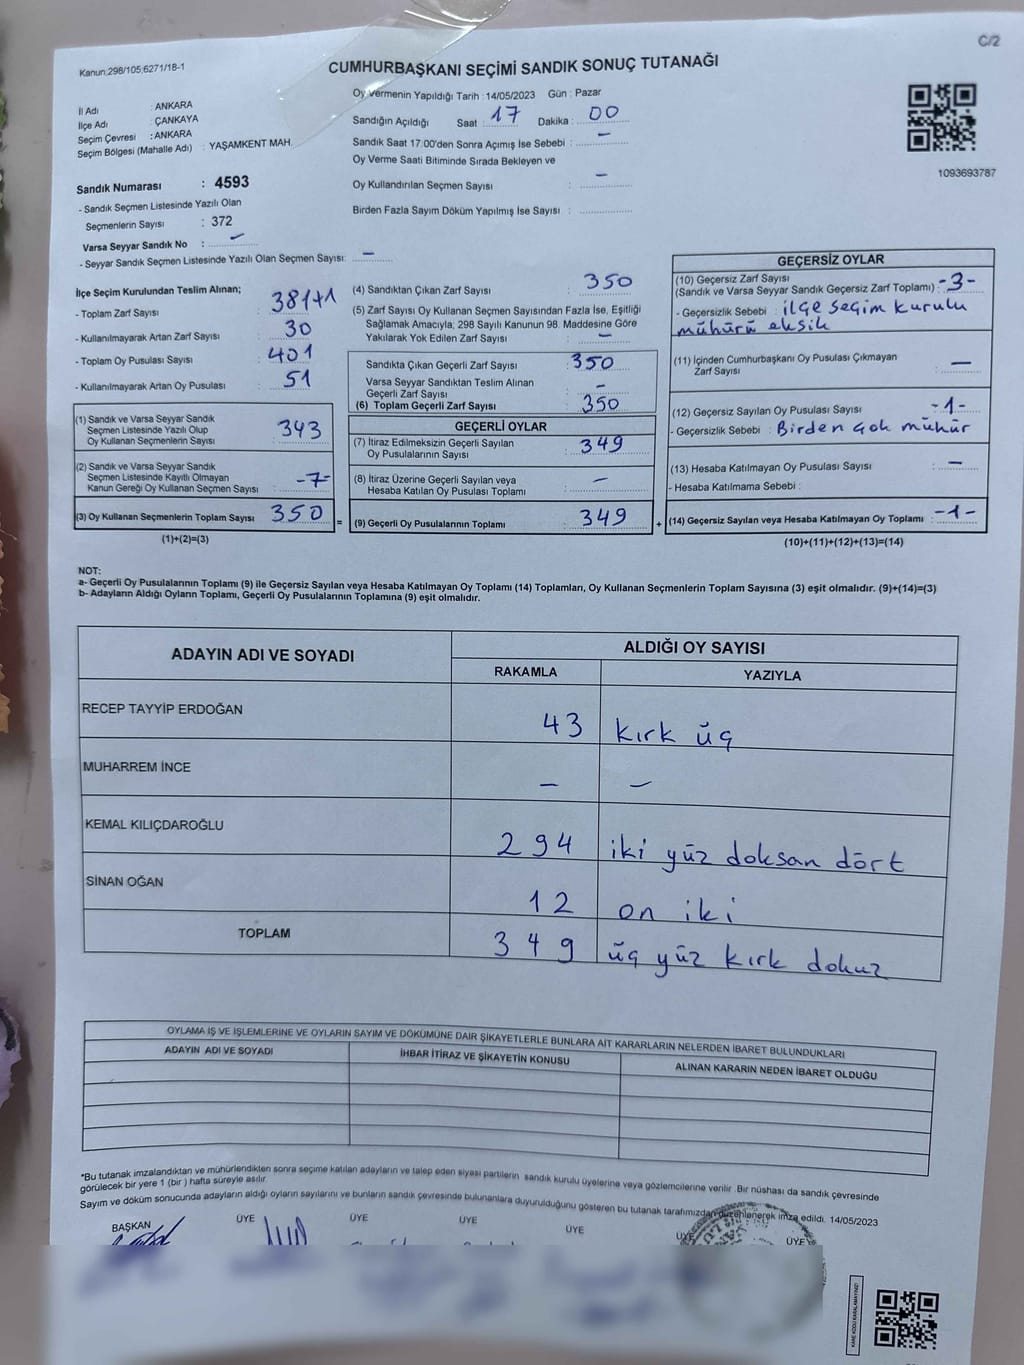 C/2
Kanun:298/105;6271/18-1
CUMHURBAŞKANI SEÇİMİ SANDIK SONUÇ TUTANAĞI
İl Adı : ANKARA
İlçe Adı : ÇANKAYA
Seçim Çevresi : ANKARA
Seçim Bölgesi (Mahalle Adı) : YAŞAMKENT MAH.
Sandık Numarası : 4593
- Sandık Seçmen Listesinde Yazılı Olan
Seçmenlerin Sayısı : 372
Varsa Seyyar Sandık No : -
- Seyyar Sandık Seçmen Listesinde Yazılı Olan Seçmen Sayısı: -
Oy Vermenin Yapıldığı Tarih : 14/05/2023 Gün : Pazar
Sandığın Açıldığı Saat : 17 Dakika : 00
Sandık Saat 17.00'den Sonra Açımış İse Sebebi : -
Oy Verme Saati Bitiminde Sırada Bekleyen ve
Oy Kullandırılan Seçmen Sayısı : -
Birden Fazla Sayım Döküm Yapılmış İse Sayısı :
1093693787
İlçe Seçim Kurulundan Teslim Alınan;
- Toplam Zarf Sayısı : 381+1
- Kullanılmayarak Artan Zarf Sayısı : 30
- Toplam Oy Pusulası Sayısı : 401
- Kullanılmayarak Artan Oy Pusulası : 51
(1) Sandık ve Varsa Seyyar Sandık
Seçmen Listesinde Yazılı Olup
Oy Kullanan Seçmenlerin Sayısı : 343
(2) Sandık ve Varsa Seyyar Sandık
Seçmen Listesinde Kayıtlı Olmayan
Kanun Gereği Oy Kullanan Seçmen Sayısı : -7-
(3) Oy Kullanan Seçmenlerin Toplam Sayısı : 350
(1)+(2)=(3)
=
(4) Sandıktan Çıkan Zarf Sayısı : 350
(5) Zarf Sayısı Oy Kullanan Seçmen Sayısından Fazla İse, Eşitliği
Sağlamak Amacıyla; 298 Sayılı Kanunun 98. Maddesine Göre
Yakılarak Yok Edilen Zarf Sayısı : -
Sandıkta Çıkan Geçerli Zarf Sayısı : 350
Varsa Seyyar Sandıktan Teslim Alınan
Geçerli Zarf Sayısı : -
(6) Toplam Geçerli Zarf Sayısı : 350
GEÇERLİ OYLAR
(7) İtiraz Edilmeksizin Geçerli Sayılan
Oy Pusulalarının Sayısı : 349
(8) İtiraz Üzerine Geçerli Sayılan veya
Hesaba Katılan Oy Pusulası Toplamı : -
(9) Geçerli Oy Pusulalarının Toplamı : 349
+
GEÇERSİZ OYLAR
(10) Geçersiz Zarf Sayısı
(Sandık ve Varsa Seyyar Sandık Geçersiz Zarf Toplamı) : -3-
- Geçersizlik Sebebi : ilçe seçim kurulu
mühürü eksik
(11) İçinden Cumhurbaşkanı Oy Pusulası Çıkmayan
Zarf Sayısı : -
(12) Geçersiz Sayılan Oy Pusulası Sayısı : -1-
- Geçersizlik Sebebi : Birden çok mühür
(13) Hesaba Katılmayan Oy Pusulası Sayısı : -
- Hesaba Katılmama Sebebi :
(14) Geçersiz Sayılan veya Hesaba Katılmayan Oy Toplamı : -1-
(10)+(11)+(12)+(13)=(14)
NOT:
a- Geçerli Oy Pusulalarının Toplamı (9) ile Geçersiz Sayılan veya Hesaba Katılmayan Oy Toplamı (14) Toplamları, Oy Kullanan Seçmenlerin Toplam Sayısına (3) eşit olmalıdır. (9)+(14)=(3)
b- Adayların Aldığı Oyların Toplamı, Geçerli Oy Pusulalarının Toplamına (9) eşit olmalıdır.
ADAYIN ADI VE SOYADI ALDIĞI OY SAYISI
RAKAMLA YAZIYLA
RECEP TAYYİP ERDOĞAN 43 kırk üç
MUHARREM İNCE - -
KEMAL KILIÇDAROĞLU 294 iki yüz doksan dört
SİNAN OĞAN 12 on iki
TOPLAM 349 üç yüz kırk dokuz
OYLAMA İŞ VE İŞLEMLERİNE VE OYLARIN SAYIM VE DÖKÜMÜNE DAİR ŞİKAYETLERLE BUNLARA AİT KARARLARIN NELERDEN İBARET BULUNDUKLARI
ADAYIN ADI VE SOYADI İHBAR İTİRAZ VE ŞİKAYETİN KONUSU ALINAN KARARIN NEDEN İBARET OLDUĞU
*Bu tutanak imzalandıktan ve mühürlendikten sonra seçime katılan adayların ve talep eden siyasi partilerin sandık kurulu üyelerine veya gözlemcilerine verilir. Bir nüshası da sandık çevresinde
görülecek bir yere 1 (bir ) hafta süreyle asılır.
Sayım ve döküm sonucunda adayların aldığı oyların sayılarını ve bunların sandık çevresinde bulunanlara duyurulduğunu gösteren bu tutanak tarafımızdan düzenlenerek imza edildi. 14/05/2023
BAŞKAN ÜYE ÜYE ÜYE ÜYE ÜYE ÜYE
KARE KODU KARALAMAYINIZ!